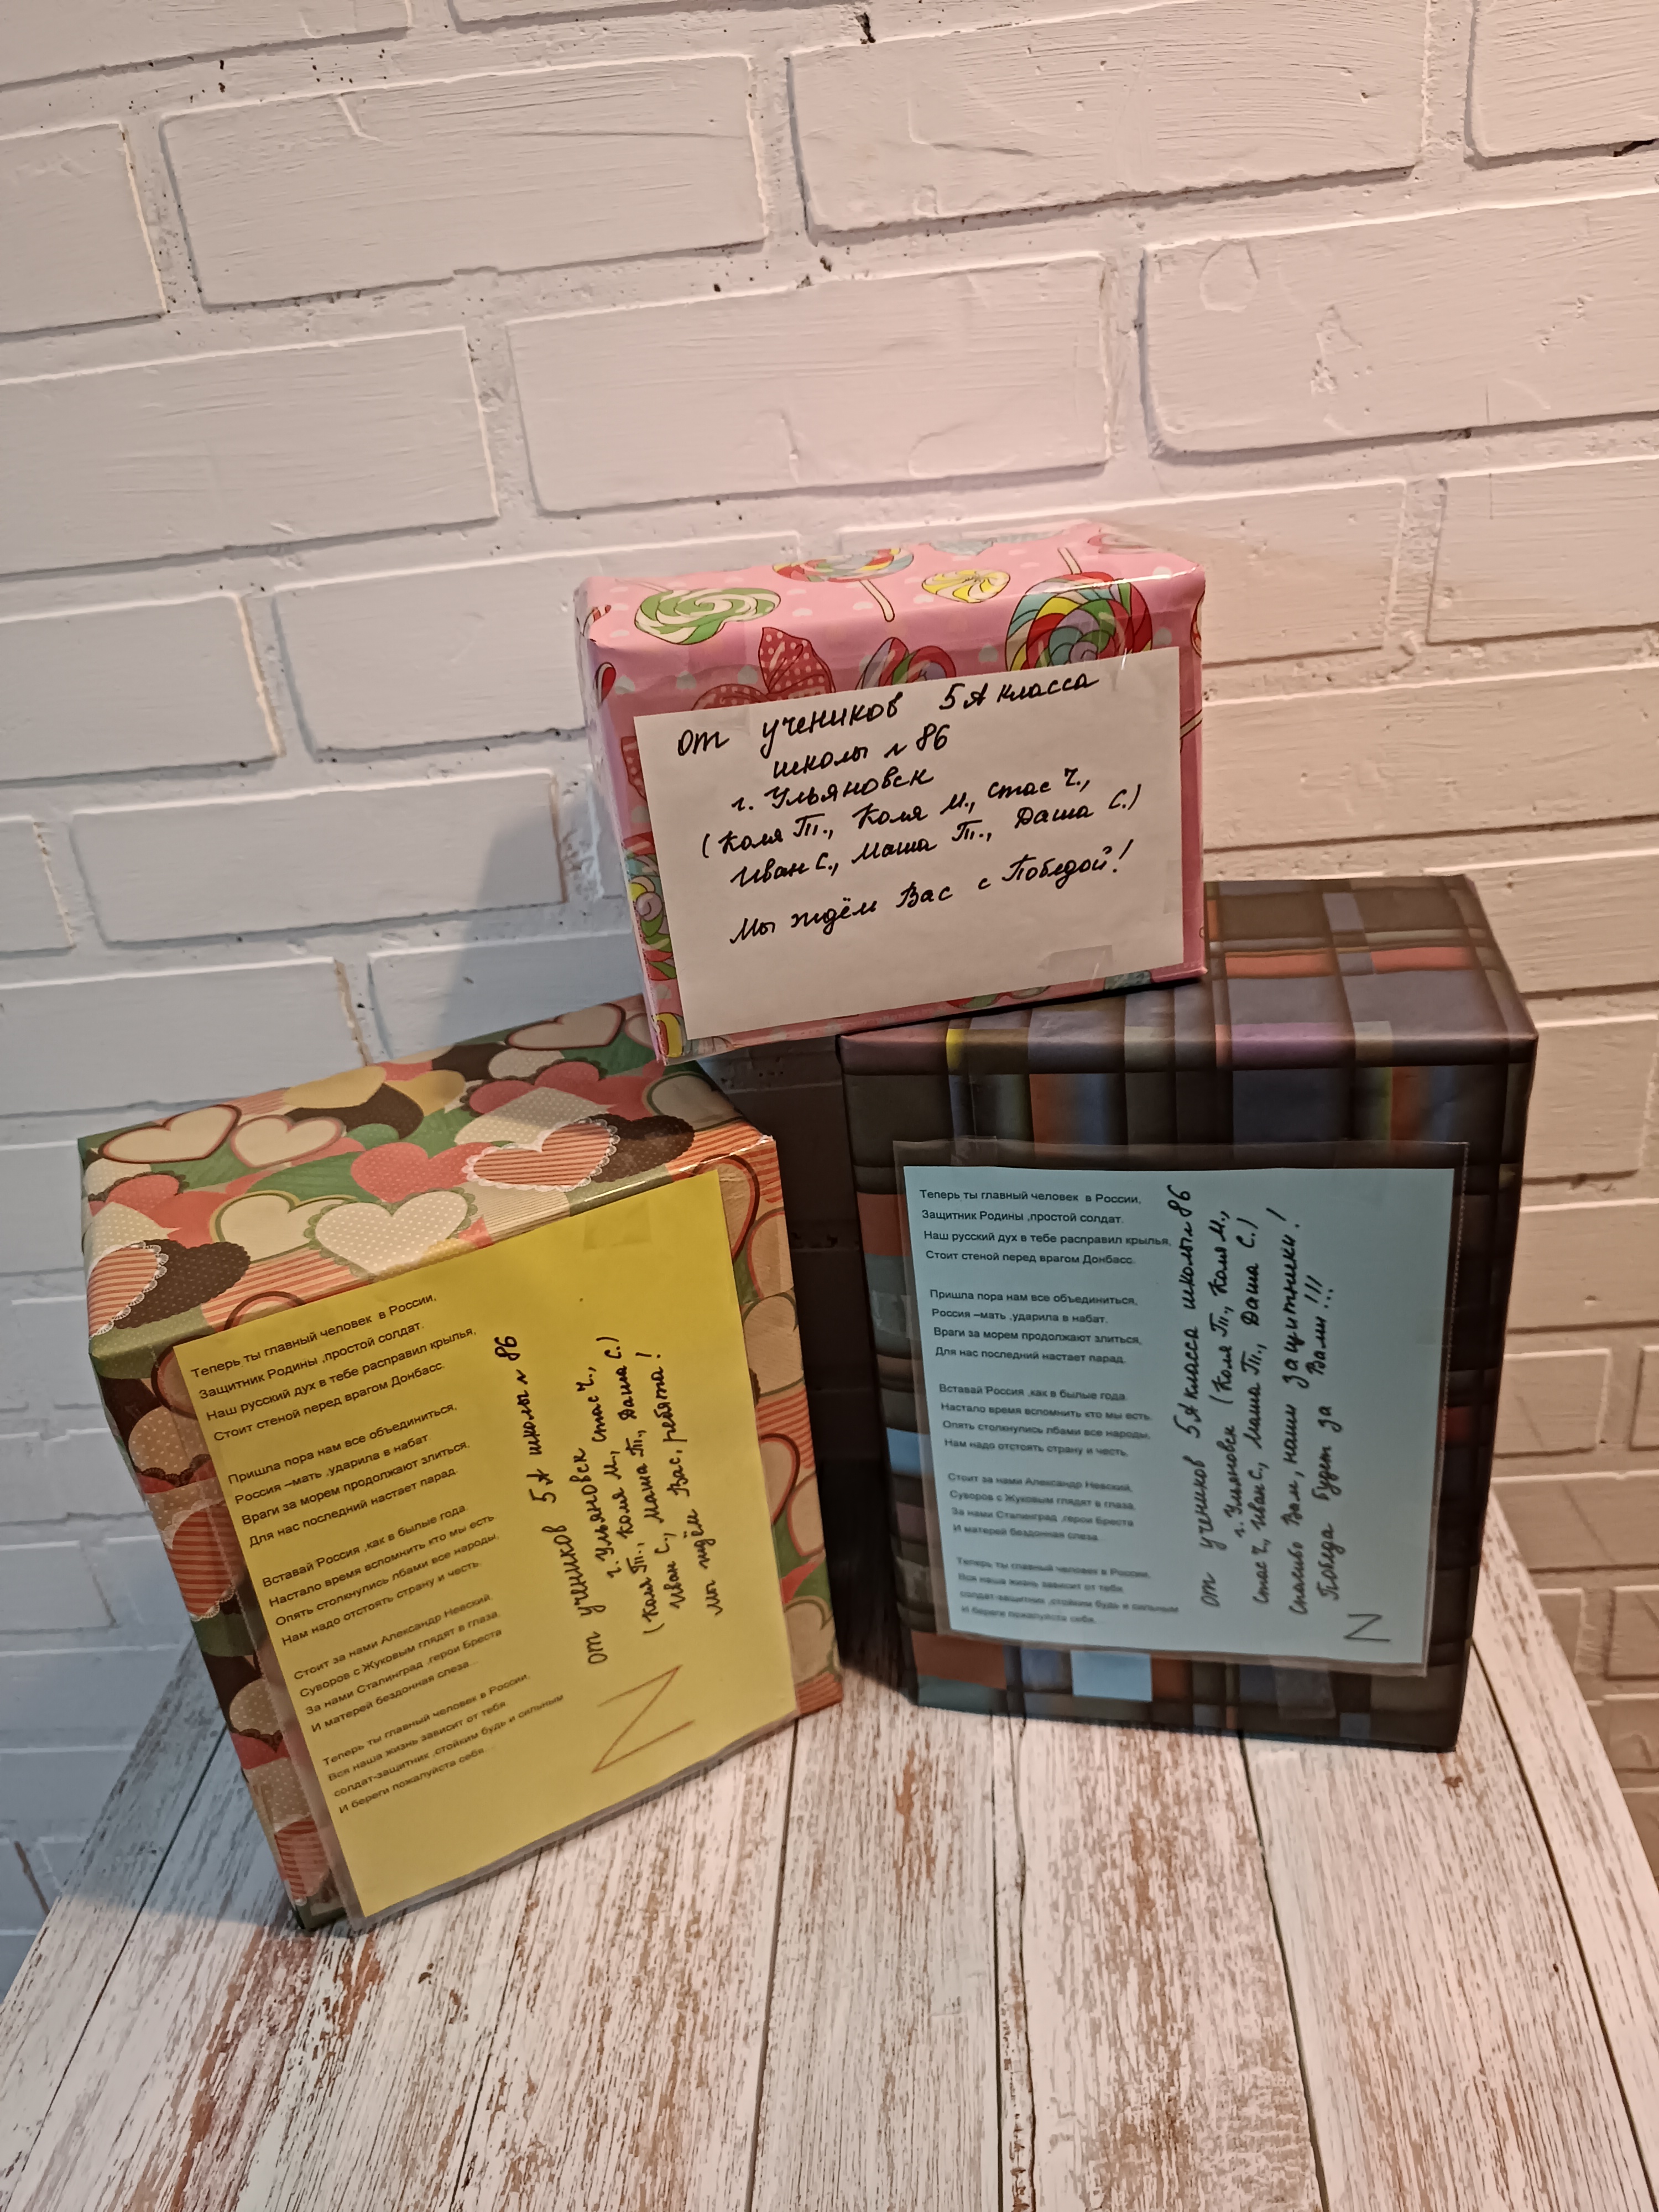 от учеников 5А класса
школы № 86
г. Ульяновск
(Коля Т., Коля М., Стас Ч.,
Иван С., Маша Т., Даша С.)
Мы ждём Вас с Победой!
Теперь ты главный человек в России,
Защитник Родины ,простой солдат.
Наш русский дух в тебе расправил крылья,
Стоит стеной перед врагом Донбасс.
Пришла пора нам все объединиться,
Россия –мать ,ударила в набат.
Враги за морем продолжают злиться,
Для нас последний настает парад.
Вставай Россия ,как в былые года.
Настало время вспомнить кто мы есть
Опять столкнулись лбами все народы,
Нам надо отстоять страну и честь.
Стоит за нами Александр Невский.
Суворов с Жуковым глядят в глаза.
За нами Сталинград ,герои Бреста
И матерей бездонная слеза...
Теперь ты главный человек в России.
Вся наша жизнь зависит от тебя
солдат-защитник ,стойким будь и сильным
И береги пожалуйста себя...
от учеников 5А школы № 86
г. Ульяновск
(Коля Т., Коля М., Стас Ч.,
Иван С., Маша Т., Даша С.)
Мы ждём Вас, ребята!
Z
Теперь ты главный человек в России,
Защитник Родины ,простой солдат.
Наш русский дух в тебе расправил крылья,
Стоит стеной перед врагом Донбасс.
Пришла пора нам все объединиться,
Россия –мать ,ударила в набат.
Враги за морем продолжают злиться,
Для нас последний настает парад.
Вставай Россия ,как в былые года.
Настало время вспомнить кто мы есть.
Опять столкнулись лбами все народы,
Нам надо отстоять страну и честь.
Стоит за нами Александр Невский,
Суворов с Жуковым глядят в глаза.
За нами Сталинград ,герои Бреста
И матерей бездонная слеза...
Теперь ты главный человек в России.
Вся наша жизнь зависит от тебя
солдат-защитник ,стойким будь и сильным
И береги пожалуйста себя...
от учеников 5А класса школы № 86
г. Ульяновск (Коля Т., Коля М.,
Стас Ч., Иван С., Маша Т., Даша С.)
Спасибо Вам, наши защитники!
Победа будет за Вами!!!
Z